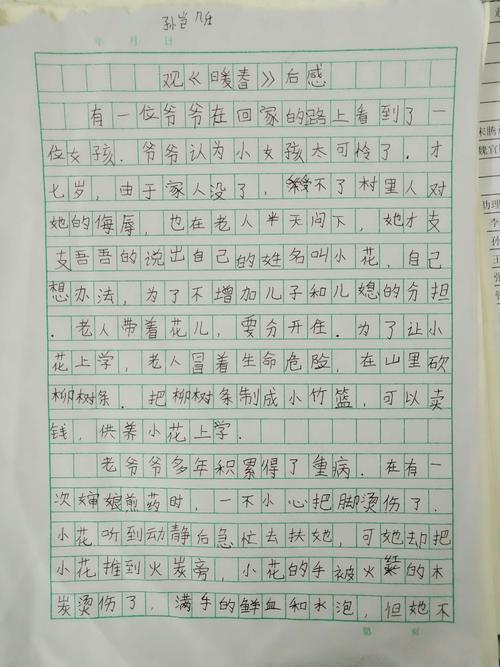 孙岂 几任
年 月 日
观《暖春》后感
有一位爷爷在回家的路上看到了一
位女孩.爷爷认为小女孩太可怜了.才
七岁,由于家人没了,受不了村里人对
她的侮辱,也在老人半天问下,她才支
支吾吾的说出自己的姓名叫小花,自己
想办法,为了不增加儿子和儿媳的分担
.老人带着花儿,要分开住.为了让小
花上学,老人冒着生命危险,在山里砍
柳树条.把柳树条制成小竹篮,可以卖
钱,供养小花上学.
老爷爷多年积累得了重病.在有一
次婶娘煎药时,一不小心把脚烫伤了.
小花听到动静后急忙去扶她,可她却把
小花推到火炭旁,小花的手被火红的木
炭烫伤了,满手的鲜血和水泡,但她不
第 页
宋腾
魏官
协理
李
孙
王
张